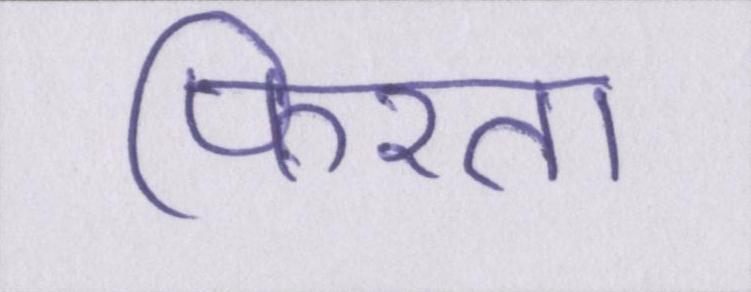 फिरता